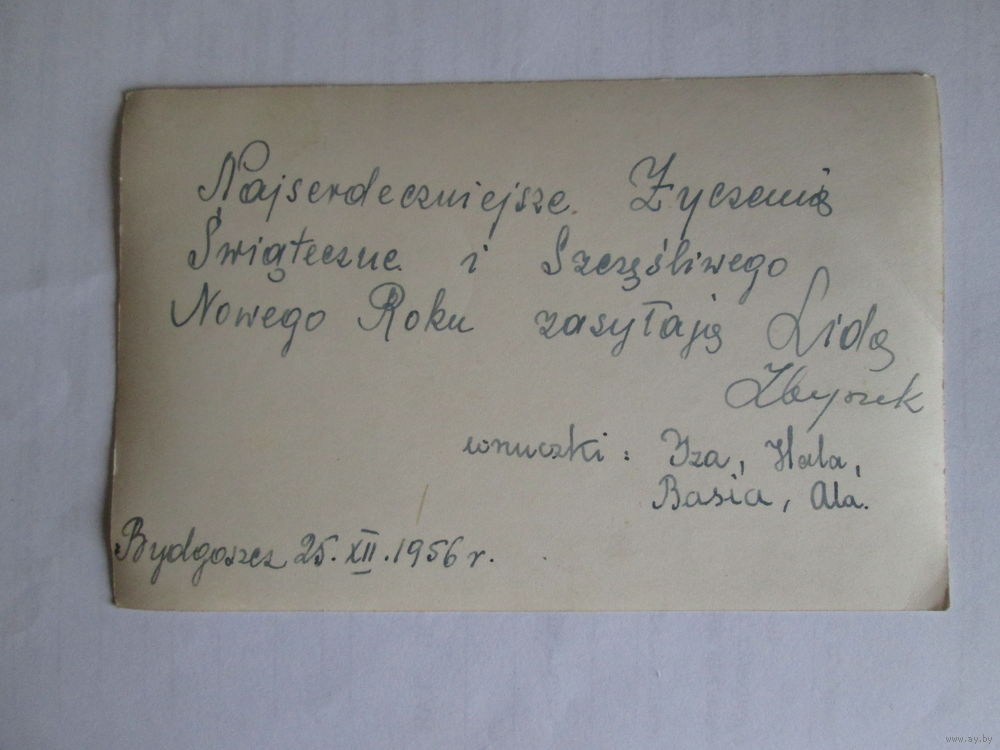 Najserdeczniejsze Życzenia
Świąteczne i Szczęśliwego
Nowego Roku zasyłają Lida
Zbyszek
wnuczki: Iza, Hala,
Basia, Ala.
Bydgoszcz 25.XII.1956 r.
www.ay.by